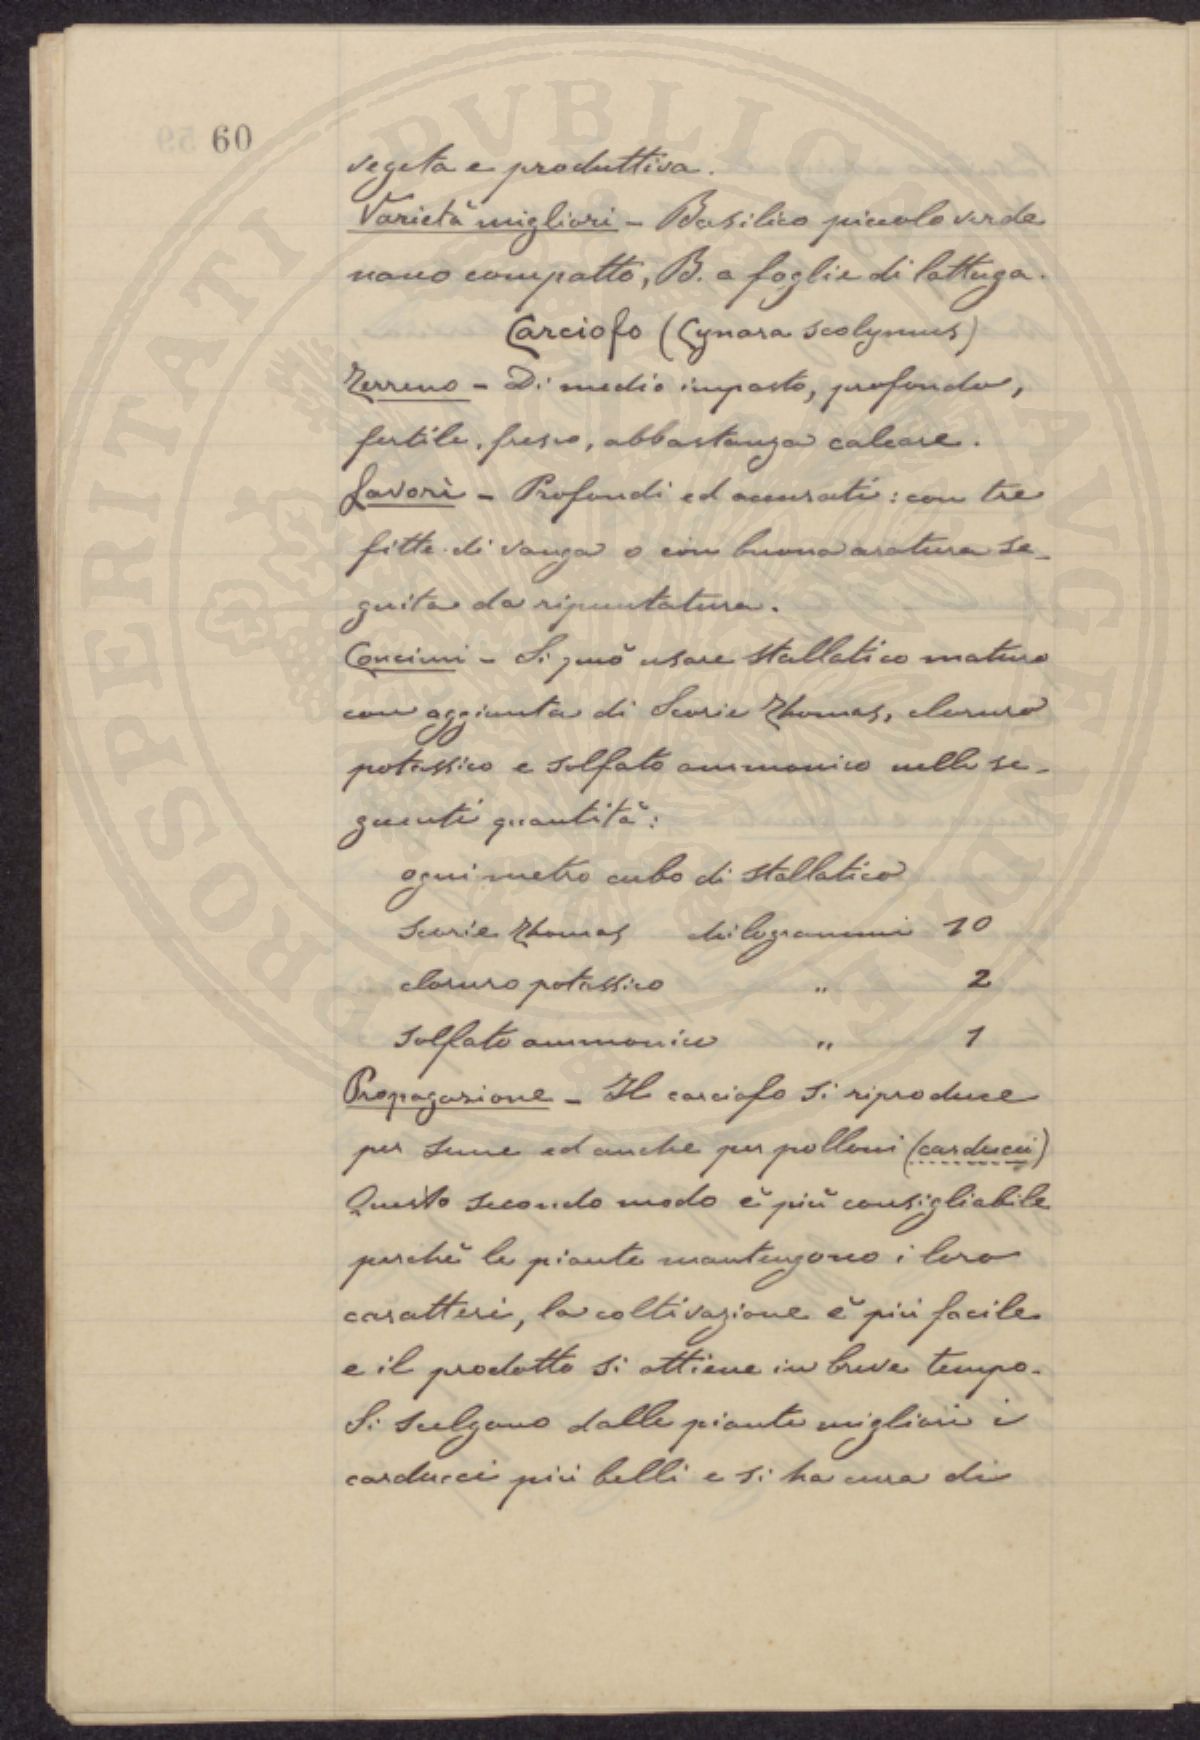 60
vegeta e produttiva.
Varietà migliori - Basilico piccolo verde
nano compatto, B. a foglie di lattuga.
Carciofo (Cynara scolymus)
Terreno - Di medio impasto, profondo,
fertile, fresco, abbastanza calcare.
Lavori - Profondi ed accurati: con tre
fitte di vanga o con buona aratura se-
guita da ripuntatura.
Concimi - Si può usare stallatico maturo
con aggiunta di Scorie Thomas, cloruro
potassico e solfato ammonico nelle se-
guenti quantità:
ogni metro cubo di stallatico
Scorie Thomas chilogrammi 10
cloruro potassico " 2
solfato ammonico " 1
Propagazione - Il carciofo si riproduce
per seme ed anche per polloni (carducci)
Questo secondo modo è più consigliabile
perchè le piante mantengono i loro
caratteri, la coltivazione è più facile
e il prodotto si ottiene in breve tempo.
Si scelgano dalle piante migliori i
carducci più belli e si ha cura di
PROSPERITATI PVBLICAE AVGENDAE